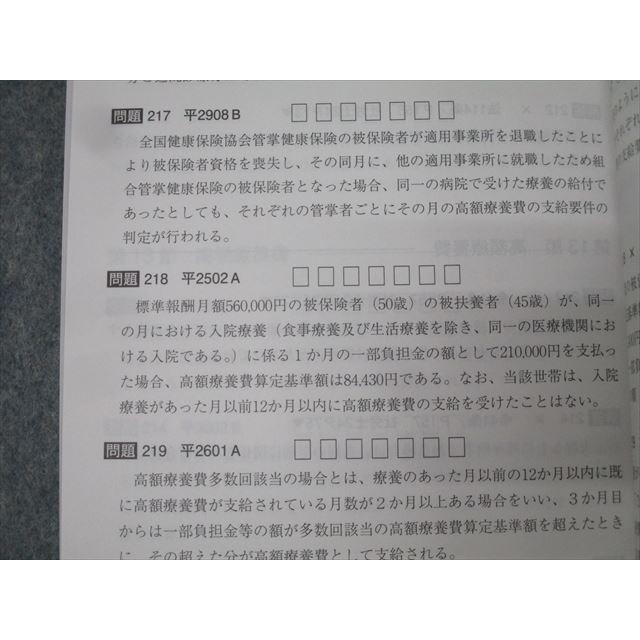 問題 217 平2908B □□□□□□□
全国健康保険協会管掌健康保険の被保険者が適用事業所を退職したことに
より被保険者資格を喪失し、その同月に、他の適用事業所に就職したため組
合管掌健康保険の被保険者となった場合、同一の病院で受けた療養の給付で
あったとしても、それぞれの管掌者ごとにその月の高額療養費の支給要件の
判定が行われる。
問題 218 平2502A □□□□□□□
標準報酬月額560,000円の被保険者（50歳）の被扶養者（45歳）が、同一
の月における入院療養（食事療養及び生活療養を除き、同一の医療機関にお
ける入院である。）に係る1か月の一部負担金の額として210,000円を支払っ
た場合、高額療養費算定基準額は84,430円である。なお、当該世帯は、入院
療養があった月以前12か月以内に高額療養費の支給を受けたことはない。
問題 219 平2601A □□□□□□□
高額療養費多数回該当の場合とは、療養のあった月以前の12か月以内に既
に高額療養費が支給されている月数が2か月以上ある場合をいい、3か月目
からは一部負担金等の額が多数回該当の高額療養費算定基準額を超えたとき
に、その超えた分が高額療養費として支給される。